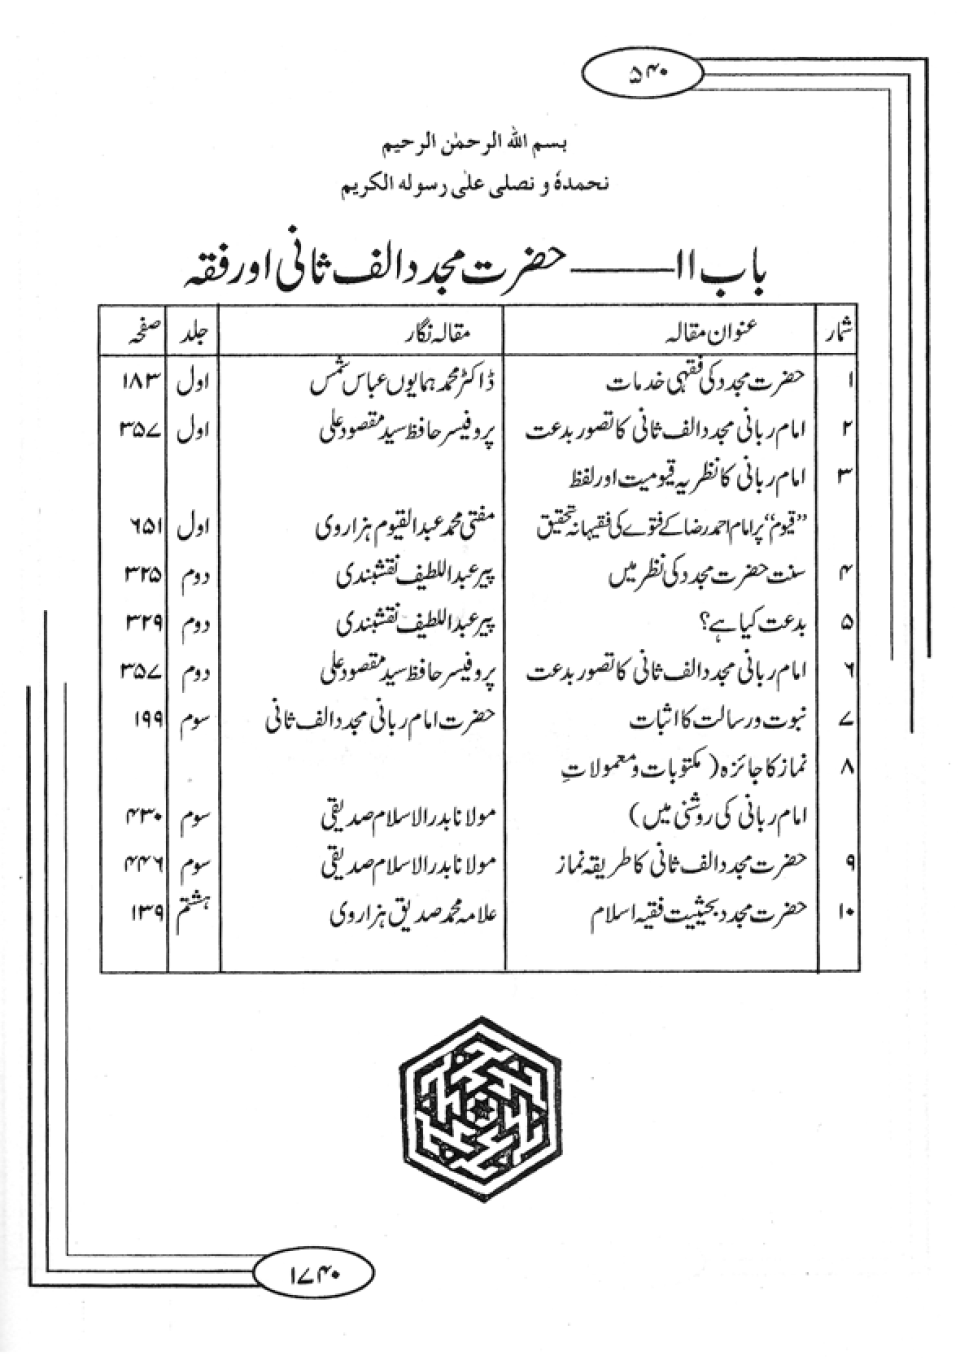 ۵۴۰
بسم اللہ الرحمٰن الرحیم
نحمدہٗ و نصلی علیٰ رسولہ الکریم
باب ۱۱ ——— حضرت مجدد الف ثانی اور فقہ
شمار عنوان مقالہ مقالہ نگار جلد صفحہ
۱ حضرت مجدد کی فقہی خدمات ڈاکٹر محمد ہمایوں عباس شمس اول ۱۸۳
۲ امام ربانی مجدد الف ثانی کا تصور بدعت پروفیسر حافظ سید مقصود علی اول ۳۵۷
۳ امام ربانی کا نظریہ قیومیت اور لفظ
”قیوم“ پر امام احمد رضا کے فتوے کی فقیہانہ تحقیق مفتی محمد عبدالقیوم ہزاروی اول ۶۵۱
۴ سنت حضرت مجدد کی نظر میں پیر عبداللطیف نقشبندی دوم ۳۲۵
۵ بدعت کیا ہے؟ پیر عبداللطیف نقشبندی دوم ۳۲۹
۶ امام ربانی مجدد الف ثانی کا تصور بدعت پروفیسر حافظ سید مقصود علی دوم ۳۵۷
۷ نبوت و رسالت کا اثبات حضرت امام ربانی مجدد الف ثانی سوم ۱۹۹
۸ نماز کا جائزہ (مکتوبات و معمولاتِ
امام ربانی کی روشنی میں) مولانا بدر الاسلام صدیقی سوم ۴۳۰
۹ حضرت مجدد الف ثانی کا طریقہ نماز مولانا بدر الاسلام صدیقی سوم ۴۴۶
۱۰ حضرت مجدد بحیثیت فقیہ اسلام علامہ محمد صدیق ہزاروی ہشتم ۱۳۹
۱۷۴۰